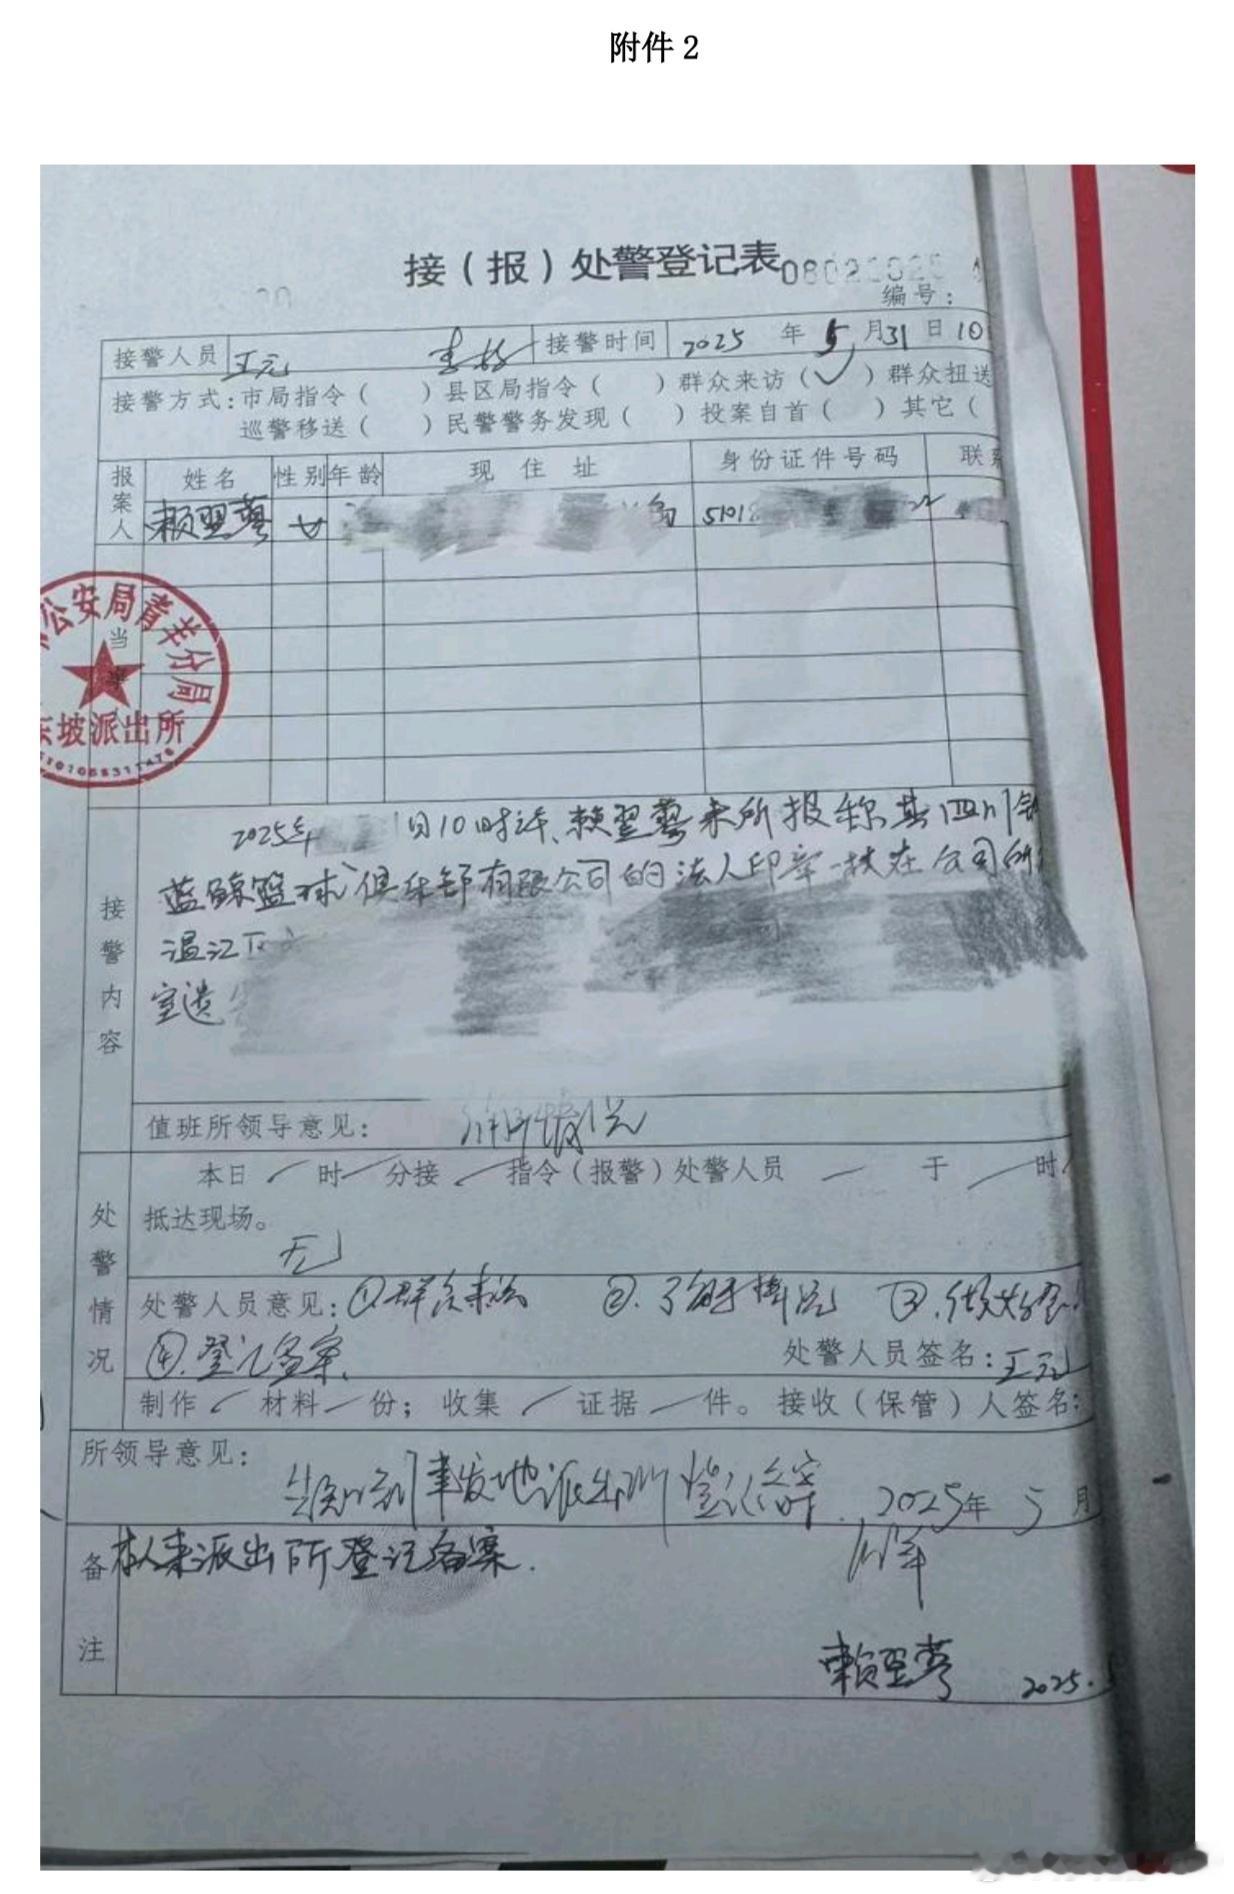 附件 2
接（报）处警登记表
编号：
接警人员 王元 接警时间 2025 年 5 月 31 日 10
接警方式：市局指令（ ）县区局指令（ ）群众来访（✓）群众扭送
巡警移送（ ）民警警务发现（ ）投案自首（ ）其它（
报案人 姓名 性别 年龄 现住址 身份证件号码 联系
赖翌蕶 女
公安局青羊分局
东坡派出所
当事
接警内容
2025年 1日10时许，赖翌蕶来所报称其四川
蓝鲸篮球俱乐部有限公司的法人印章一枚在公司所
温江区
室遗
值班所领导意见：
处警情况
本日 时 分接 指令（报警）处警人员 于 时
抵达现场。
无
处警人员意见：①群众来访 ②.了解情况 ③.做好
④.登记备案. 处警人员签名：王元
制作 材料 份；收集 证据 件。接收（保管）人签名：
所领导意见：
告知到事发地派出所登记备案. 2025年 5 月
备注
本人来派出所登记备案.
赖翌蕶 2025.5